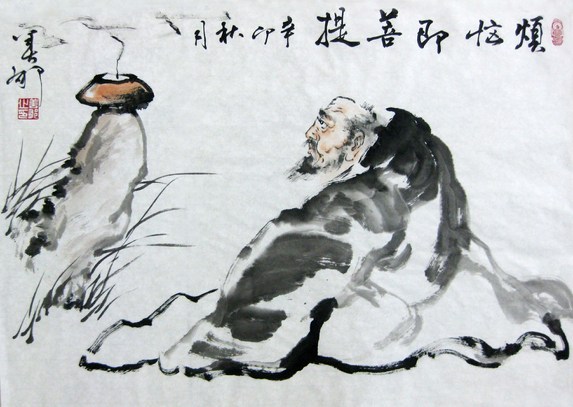 煩恼即菩提辛卯秋月